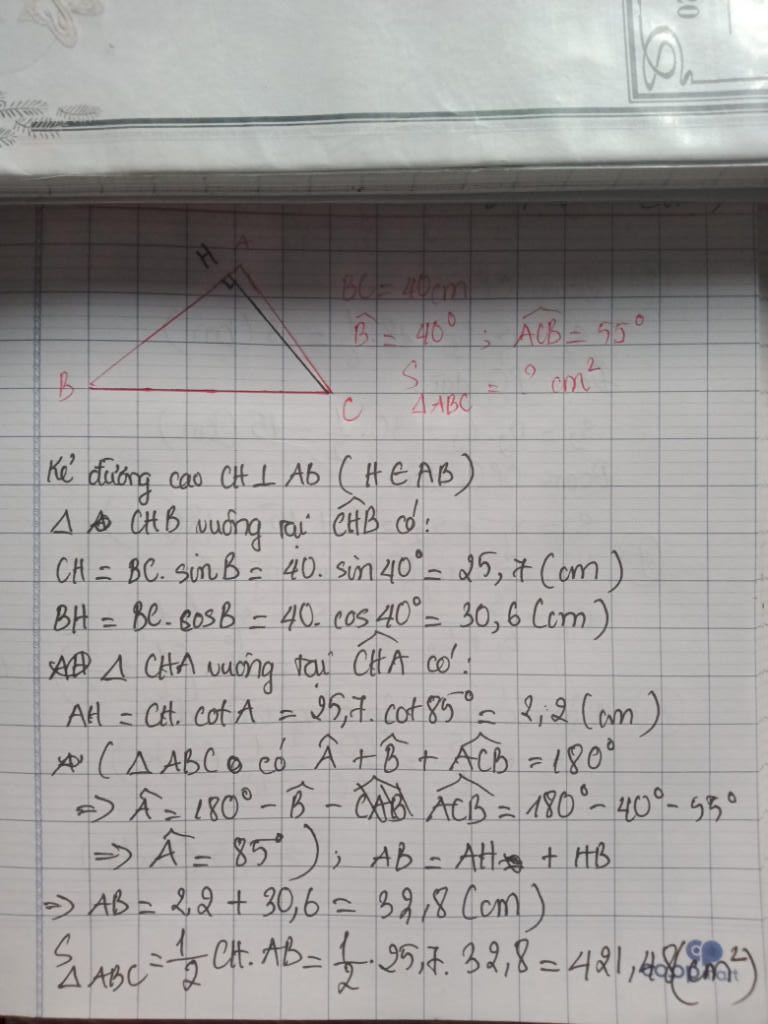 H A
BC = 40cm
B̂ = 40° ; ACB = 55°
B
C
S ΔABC = ? cm²
Kẻ đường cao CH ⊥ AB (H ∈ AB)
Δ CHB vuông tại CHB có:
CH = BC. sinB = 40. sin40° = 25,7 (cm)
BH = BC. cosB = 40. cos40° = 30,6 (cm)
Δ CHA vuông tại CHA có:
AH = CH. cotA = 25,7. cot85° = 2,2 (cm)
( Δ ABC có Â + B̂ + ACB = 180°
=> Â = 180° - B̂ - ACB = 180° - 40° - 55°
=> Â = 85° ) ; AB = AH + HB
=> AB = 2,2 + 30,6 = 32,8 (cm)
S ΔABC = 1/2 CH. AB = 1/2 . 25,7. 32,8 = 421,48 (cm²)